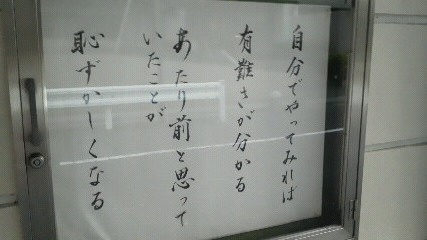 自分でやってみれば
有難さが分かる
あたり前と思って
いたことが
恥ずかしくなる